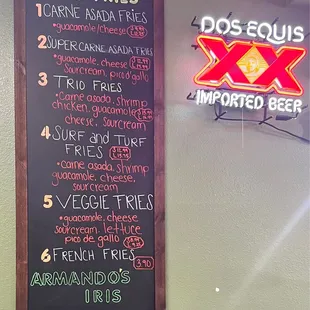 FRIES
1 CARNE ASADA FRIES
•guacamole, cheese
2 SUPER CARNE ASADA FRIES
•guacamole, cheese
sourcream, pico d' gallo
3 TRIO FRIES
•Carne asada, shrimp
chicken, guacamole
cheese, sourcream
4 SURF and TURF
FRIES
•carne asada, shrimp
guacamole, cheese,
sourcream
5 VEGGIE FRIES
•guacamole, cheese
sourcream, lettuce
pico de gallo
6 FRENCH FRIES 3.90
ARMANDO'S
IRIS
DOS EQUIS
XX
IMPORTED BEER